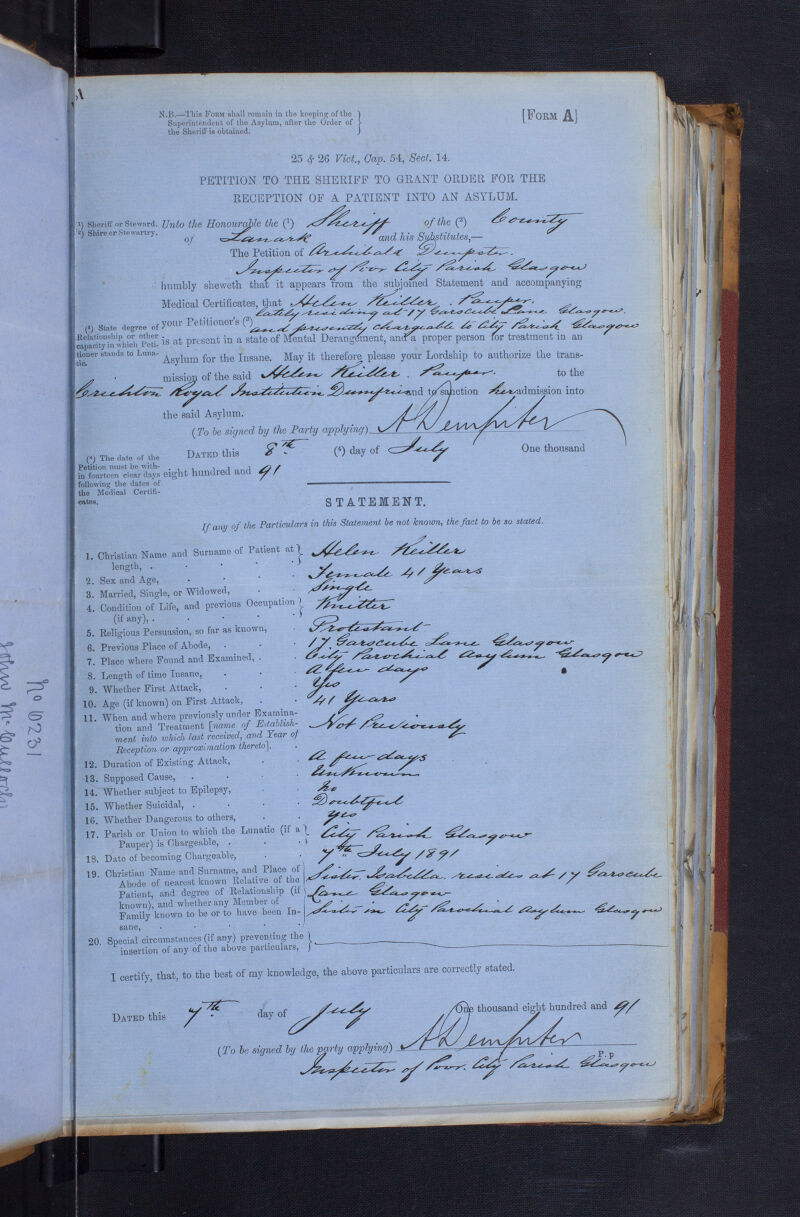 N.B.—This Form shall remain in the keeping of the
Superintendent of the Asylum, after the Order of
the Sheriff is obtained.
[Form A]
25 & 26 Vict., Cap. 54, Sect. 14.
PETITION TO THE SHERIFF TO GRANT ORDER FOR THE
RECEPTION OF A PATIENT INTO AN ASYLUM.
(1) Sheriff or Steward.
(2) Shire or Stewartry.
Unto the Honourable the (1) Sheriff of the (2) County
of Lanark and his Substitutes,—
The Petition of Archibald Dempster.
Inspector of Poor City Parish Glasgow
humbly sheweth that it appears from the subjoined Statement and accompanying
Medical Certificates, that Helen Keiller. Pauper.
lately residing at 17 Garscube Lane Glasgow.
your Petitioner's (3) and presently chargeable to City Parish Glasgow
(3) State degree of
Relationship or other
capacity in which Peti-
tioner stands to Luna-
tic.
is at present in a state of Mental Derangement, and a proper person for treatment in an
Asylum for the Insane. May it therefore please your Lordship to authorize the trans-
mission of the said Helen Keiller. Pauper. to the
Crichton Royal Institution Dumfries and to sanction her admission into
the said Asylum.
(To be signed by the Party applying) A Dempster
(4) The date of the
Petition must be with-
in fourteen clear days
following the dates of
the Medical Certifi-
cates.
Dated this 8th. (4) day of July One thousand
eight hundred and 91
STATEMENT.
If any of the Particulars in this Statement be not known, the fact to be so stated.
1. Christian Name and Surname of Patient at length, . Helen Keiller
2. Sex and Age, Female 41 Years
3. Married, Single, or Widowed, Single
4. Condition of Life, and previous Occupation (if any), . Knitter
5. Religious Persuasion, so far as known, Protestant
6. Previous Place of Abode, 17 Garscube Lane Glasgow
7. Place where Found and Examined, . City Parochial Asylum Glasgow
8. Length of time Insane, A few days
9. Whether First Attack, Yes
10. Age (if known) on First Attack, 41 Years
11. When and where previously under Examina-
tion and Treatment [name of Establish-
ment into which last received, and Year of
Reception or approximation thereto]. Not Previously
12. Duration of Existing Attack, A few days
13. Supposed Cause, Unknown
14. Whether subject to Epilepsy, No
15. Whether Suicidal, . Doubtful
16. Whether Dangerous to others, Yes
17. Parish or Union to which the Lunatic (if a
Pauper) is Chargeable, . City Parish Glasgow
18. Date of becoming Chargeable, 7th July 1891
19. Christian Name and Surname, and Place of
Abode of nearest known Relative of the
Patient, and degree of Relationship (if
known), and whether any Member of
Family known to be or to have been In-
sane,
Sister. Isabella. resides at 17 Garscube
Lane Glasgow
Sister in City Parochial Asylum Glasgow
20. Special circumstances (if any) preventing the
insertion of any of the above particulars,
I certify, that, to the best of my knowledge, the above particulars are correctly stated.
Dated this 7th. day of July One thousand eight hundred and 91
(To be signed by the party applying) A Dempster
P.P
Inspector of Poor. City Parish Glasgow
No 6231
John McCulloch